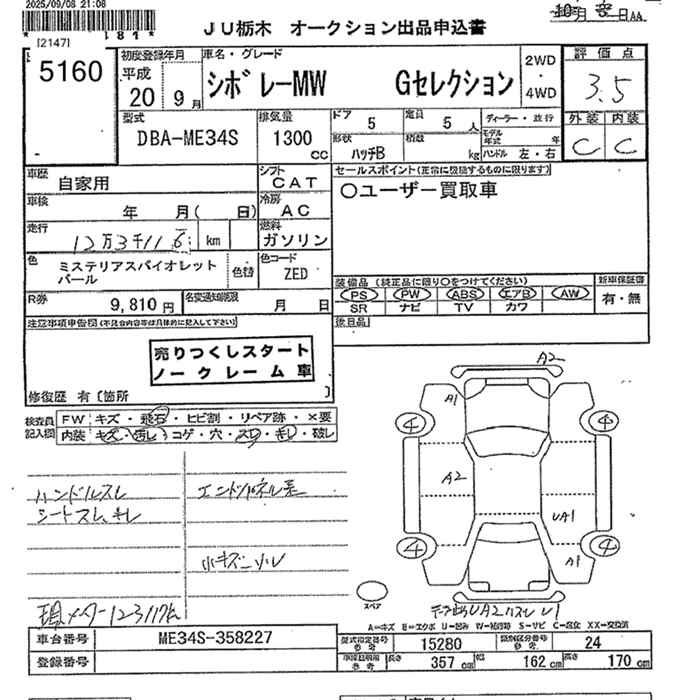 2025/09/08 21:08
[2147]
JU栃木 オークション出品申込書
日AA
5160
初度登録年月
平成
20 9月
車名・グレード
シボレーMW Gセレクション
2WD
・
4WD
評価点
3.5
型式
DBA-ME34S
排気量
1300
CC
ドア
5
定員
5 人
形状
ハッチB
積載
kg
ディーラー・並行
モデル年式 年
ハンドル 左・右
外装 内装
C C
車歴
自家用
シフト
CAT
セールスポイント(正常に機能するものに限ります)
〇ユーザー買取車
車検
年 月( 日)
冷房
AC
走行
12万3千116 km
燃料
ガソリン
色
ミステリアスバイオレット
パール
色替
色コード
ZED
装備品 (純正品に限り〇をつけてください)
新車保証書
PS PW ABS エアB AW
有・無
SR ナビ TV カワ
R券
9,810円
名変通知期限
月 日
後日品
注意事項申告欄(不具合内容等は具体的に記入して下さい)
売りつくしスタート
ノークレーム車
修復歴 有〔箇所 〕
検査員
記入欄
FW キズ・飛石・ヒビ割・リペア跡・×要
内装 キズ・汚れ・コゲ・穴・スレ・キレ・破レ
A2
A1
4
4
A2
UA1
4
4
A1
ハンドルスレ
エンドパネル歪
シートスレ、キレ
小キズ
現メーター123117km
スペア
A2
A=キズ E=エクボ U=凹み W=補修跡 S=サビ C=腐食 XX=交換済
車台番号
ME34S-358227
型式指定番号
参考
15280
類別区分番号
参考
24
登録番号
長さ
357 cm
幅
162 cm
高さ
170 cm